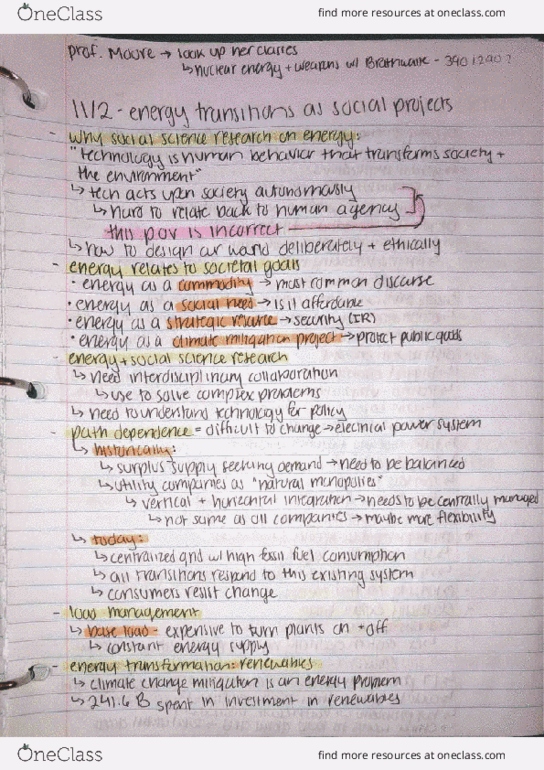 OneClass
find more resources at oneclass.com
prof. Moore → look up her classes
↳ nuclear energy + weapons w/ Braithwaite - 390 1290?
11/2 - energy transitions as social projects
- why social science research on energy:
"technology is human behavior that transforms society +
the environment"
↳ tech acts upon society autonomously
↳ hard to relate back to human agency
this pov is incorrect
↳ how to design our world deliberately + ethically
- energy relates to societal goals
• energy as a commodity → most common discourse
• energy as a social need → is it affordable
• energy as a strategic resource → security (IR)
• energy as a climate mitigation project → protect public goods
- energy + social science research
↳ need interdisciplinary collaboration
↳ use to solve complex problems
↳ need to understand technology for policy
- path dependence = difficult to change → electrical power system
↳ historically:
↳ surplus supply seeking demand → need to be balanced
↳ utility companies as "natural monopolies"
↳ vertical + horizontal integration → needs to be centrally managed
↳ not same as oil companies → maybe more flexibility
↳ today:
↳ centralized grid w/ high fossil fuel consumption
↳ all transitions respond to this existing system
↳ consumers resist change
- load management
↳ base load - expensive to turn plants on + off
↳ constant energy supply
- energy transformation: renewables
↳ climate change mitigation is an energy problem
↳ 241.6 B spent in investment in renewables
OneClass
find more resources at oneclass.com